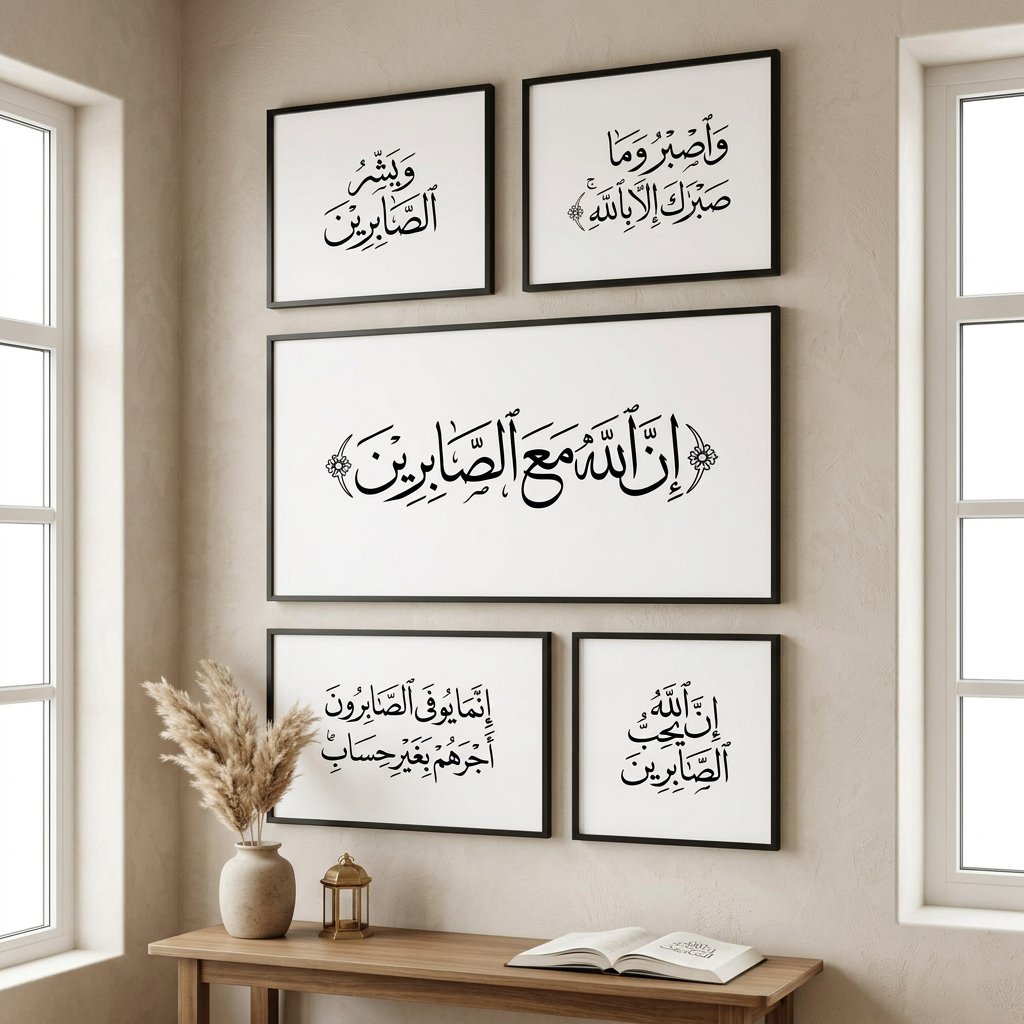 وَبَشِّرُ
ٱلصَّابِرِيْنَ
وَٱصْبِرُ وَمَا
صَبْرُكَ إِلَّا بِٱللَّهِ ۚ
إِنَّ ٱللَّهَ مَعَ ٱلصَّابِرِيْنَ
إِنَّمَا يُوفَى ٱلصَّابِرُونَ
أَجْرَهُمْ بِغَيْرِ حِسَابٍ
إِنَّ ٱللَّهَ
يُحِبُّ
ٱلصَّابِرِينَ